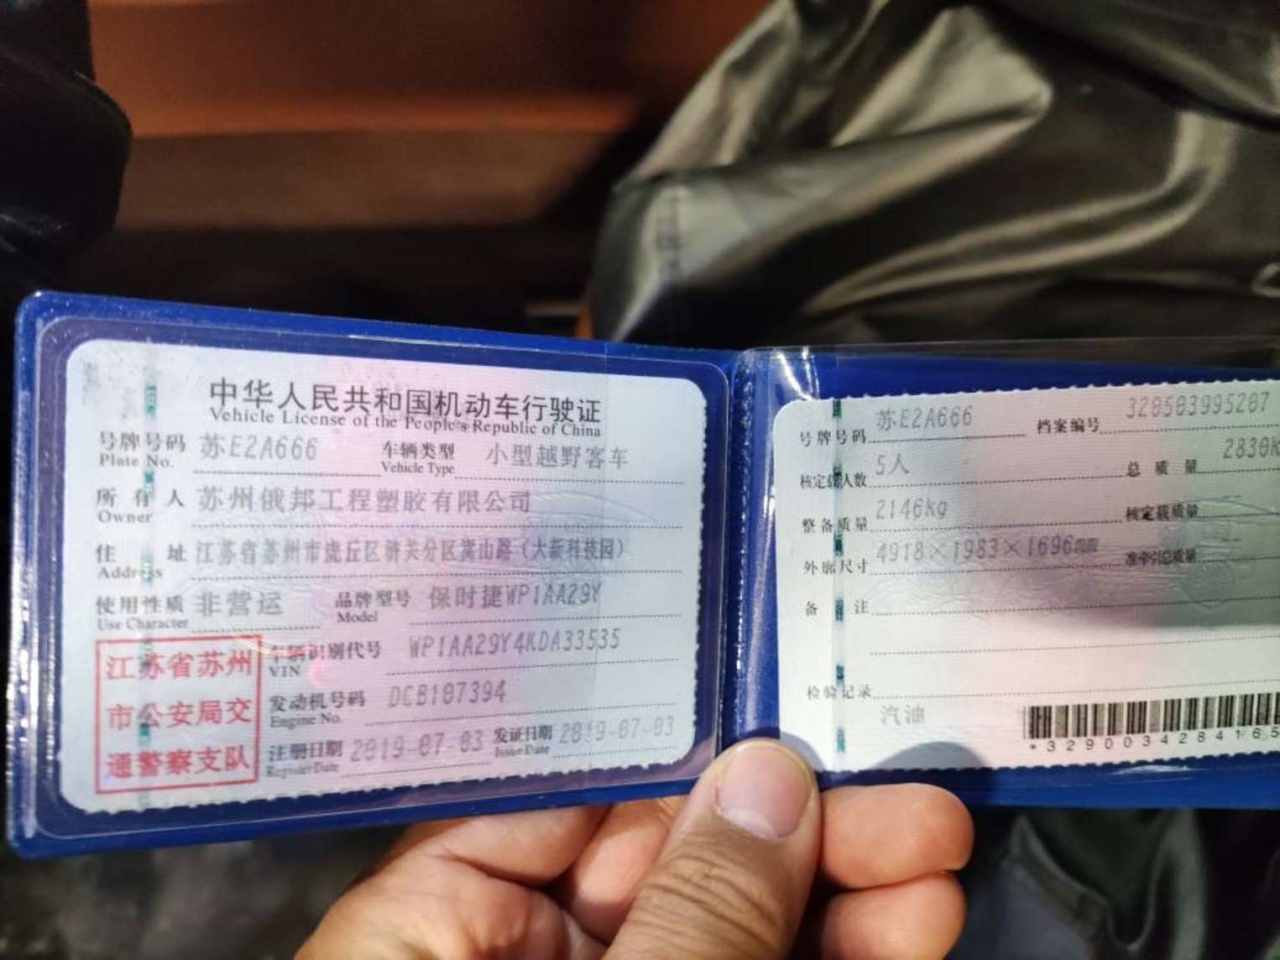 中华人民共和国机动车行驶证
Vehicle License of the People's Republic of China
号牌号码 苏E2A666 车辆类型 小型越野客车
Plate No. Vehicle Type
所有人 苏州俄邦工程塑胶有限公司
Owner
住址 江苏省苏州市虎丘区浒关分区嵩山路(大新科技园)
Address
使用性质 非营运 品牌型号 保时捷WP1AA29Y
Use Character Model
车辆识别代号 WP1AA29Y4KDA33535
VIN
发动机号码 DCB187394
Engine No.
注册日期 2019-07-03 发证日期 2019-07-03
Register Date Issue Date
江苏省苏州
市公安局交
通警察支队
号牌号码 苏E2A666 档案编号 320503995207
核定载人数 5人 总质量 2830K
整备质量 2146kg 核定载质量
外廓尺寸 4918×1983×1696mm 准牵引总质量
备注
检验记录
汽油
*3290034284165